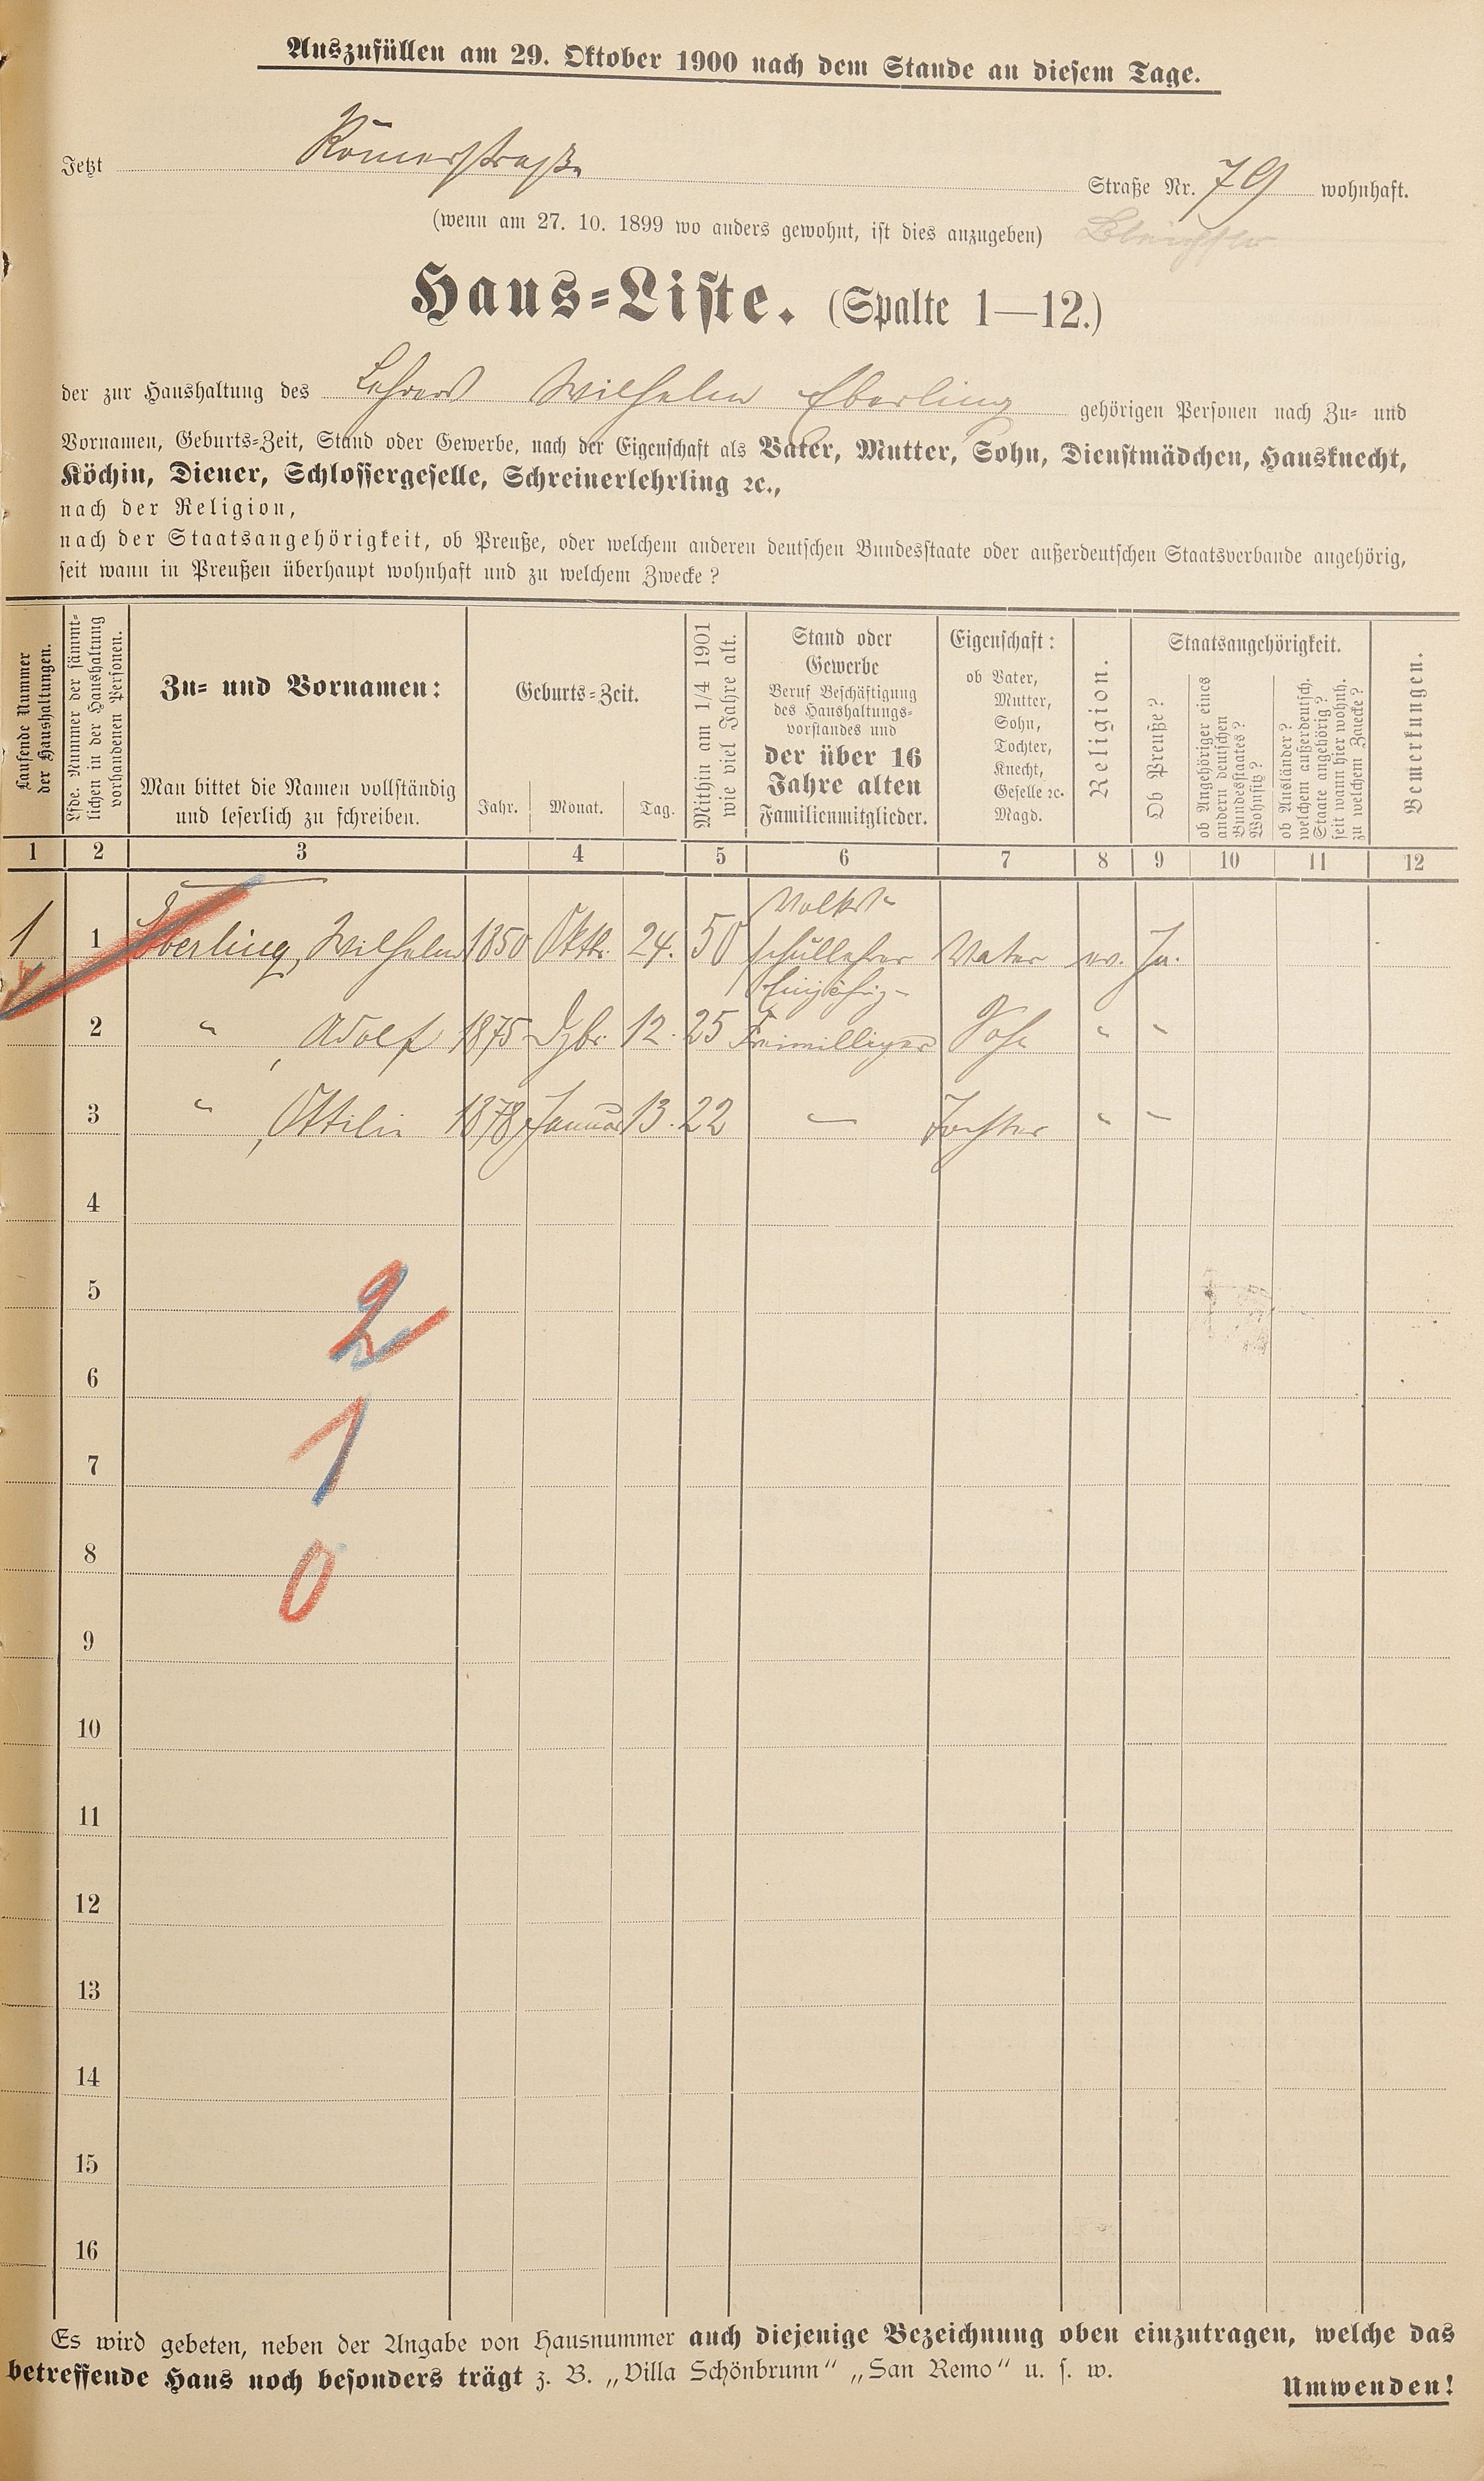 Auszufüllen am 29. Oktober 1900 nach dem Stande an diesem Tage.
Jetzt Römerstraße Straße Nr. 79 wohnhaft.
(wenn am 27. 10. 1899 wo anders gewohnt, ist dies anzugeben)
Haus-Liste. (Spalte 1—12.)
der zur Haushaltung des Lehrers Wilhelm Eberling gehörigen Personen nach Zu- und
Vornamen, Geburts-Zeit, Stand oder Gewerbe, nach der Eigenschaft als Vater, Mutter, Sohn, Dienstmädchen, Hausknecht,
Köchin, Diener, Schlossergeselle, Schreinerlehrling ꝛc.,
nach der Religion,
nach der Staatsangehörigkeit, ob Preuße, oder welchem anderen deutschen Bundesstaate oder außerdeutschen Staatsverbande angehörig,
seit wann in Preußen überhaupt wohnhaft und zu welchem Zwecke?
Laufende Nummer
der Haushaltungen.
Lfde. Nummer der sämmt-
lichen in der Haushaltung
vorhandenen Personen.
Zu- und Vornamen:
Man bittet die Namen vollständig
und leserlich zu schreiben.
Geburts-Zeit.
Jahr. Monat. Tag.
Mithin am 1/4 1901
wie viel Jahre alt.
Stand oder
Gewerbe
Beruf Beschäftigung
des Haushaltungs-
vorstandes und
der über 16
Jahre alten
Familienmitglieder.
Eigenschaft:
ob Vater,
Mutter,
Sohn,
Tochter,
Knecht,
Geselle ꝛc.
Magd.
Religion.
Staatsangehörigkeit.
Ob Preuße?
ob Angehöriger eines
andern deutschen
Bundesstaates?
Wohnsitz?
ob Ausländer?
welchem außerdeutsch.
Staate angehörig?
seit wann hier wohnh.
zu welchem Zwecke?
Bemerkungen.
1 2 3 4 5 6 7 8 9 10 11 12
Volks-
1 1 Eberling, Wilhelm 1850 Oktb. 24. 50 schullehrer Vater ev. Ja.
Einjährig-
2 " , Adolf 1875 Dzbr. 12. 25 Freiwilliger Sohn " "
3 " , Ottilie 1878 Januar 13. 22 — Tochter " "
4
5
2
6
7
1
8
0
9
10
11
12
13
14
15
16
Es wird gebeten, neben der Angabe von Hausnummer auch diejenige Bezeichnung oben einzutragen, welche das
betreffende Haus noch besonders trägt z. B. „Villa Schönbrunn“ „San Remo“ u. s. w.
Umwenden!